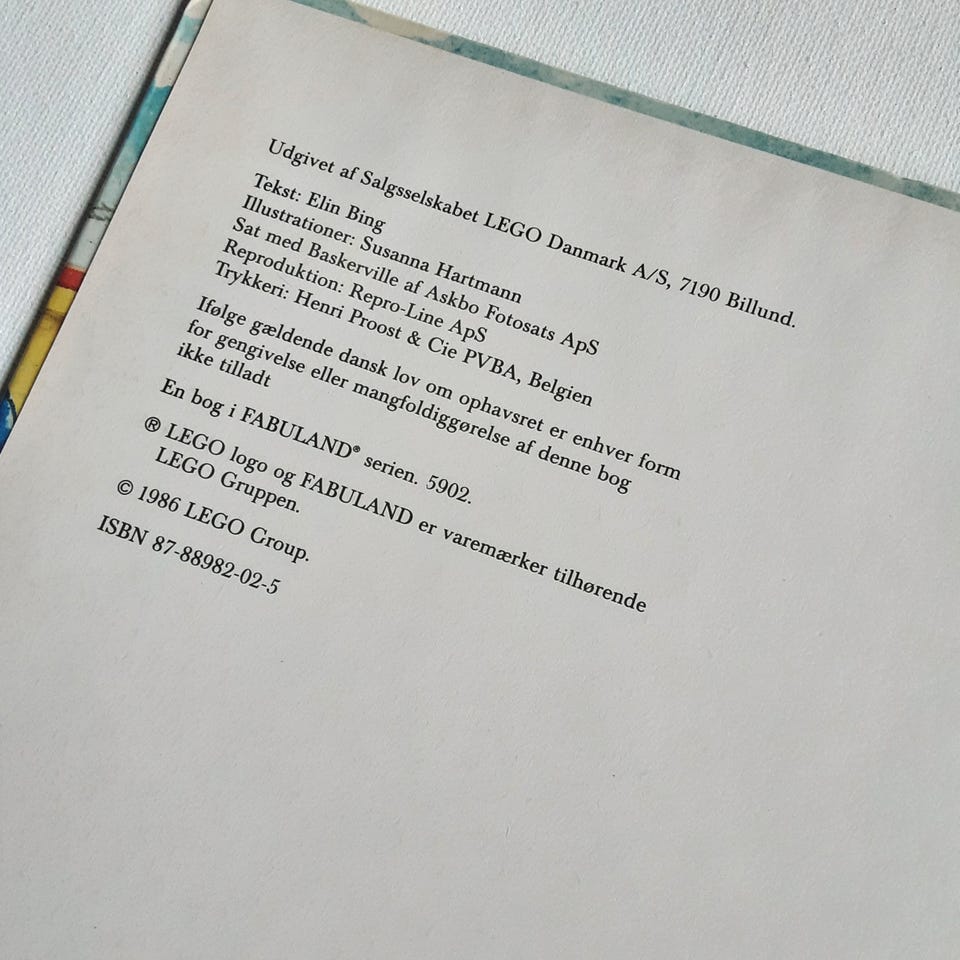 Udgivet af Salgsselskabet LEGO Danmark A/S, 7190 Billund.
Tekst: Elin Bing
Illustrationer: Susanna Hartmann
Sat med Baskerville af Askbo Fotosats ApS
Reproduktion: Repro-Line ApS
Trykkeri: Henri Proost & Cie PVBA, Belgien
Ifølge gældende dansk lov om ophavsret er enhver form
for gengivelse eller mangfoldiggørelse af denne bog
ikke tilladt
En bog i FABULAND® serien. 5902.
® LEGO logo og FABULAND er varemærker tilhørende
LEGO Gruppen.
© 1986 LEGO Group.
ISBN 87-88982-02-5